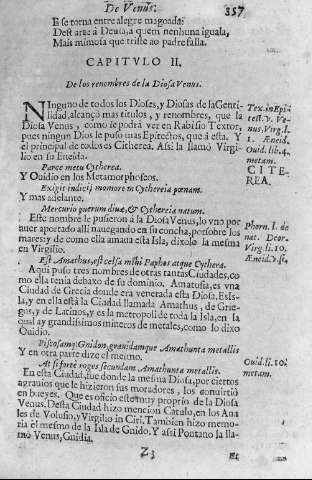 De Venus. 357
E se torna entre alegre magoada:
Dest arte â Deusa, a quem nenhuna iguala,
Mais mimosa que triste ao padre falla.
CAPITVLO II.
De los renombres de la Diosa Venus.
NInguno de todos los Dioses, y Diosas de la Genti-
lidad, alcançò mas titulos, y renombres, que la
Diosa Venus, como se podrà ver en Rabisio Textor,
pues ningun Dios le puso mas Epitectos, que à esta. Y
el principal de todos es Citherea. Assi la llamò Virgi-
lio en su Eneida.
Tex. in Epi
tect. v. Ve-
nus. Virg. l.
1. Æneid.
Ouid. lib. 4.
metam.
CITE-
REA.
Parce metu Cytherea.
Y Ouidio en los Metamorphoseos.
Exigit indicij memorem Cythereia pœnam.
Y mas adelante.
Mercurio puerum diuæ, & Cythereia natum.
Este nombre le pusieron à la Diosa Venus, lo vno por
auer aportado alli nauegando en su concha, por sobre los
mares: y de como ella amaua esta Isla, dixolo la mesma
en Virgilio.
Phorn. l. de
nat. Deor.
Virg. li. 10.
Æneid. v. si,
Est Amathus, est celsa mihi Paphos atque Cythera.
Aqui puso tres nombres de otras tantas Ciudades, co-
mo ella tenia debaxo de su dominio. Amatusia, es vna
Ciudad de Grecia donde era venerada esta Diosa. Es Is-
la, y en ella està la Ciudad llamada Amathus, de Grie-
gos, y de Latinos, y es la metropoli de toda la Isla, en la
qual ay grandissimos mineros de metales, como lo dixo
Ouidio.
Piscosamq; Gnidon, grauidamque Amathunta metallis
Y en otra parte dize el mesmo.
At si forte roges fecundam Amathunta metallis.
Ouid. li. 10.
metam.
En esta Ciudad, fue donde la mesma Diosa, por ciertos
agrauios que le hizieron sus moradores, los conuirtiò
en bueyes. Que es oficio este muy proprio de la Diosa
Venus. Desta Ciudad hizo mencion Catulo, en los Ana
les de Volusio, y Virgilio in Ciri. Tambien hizo memo-
ria el mesmo de la Isla de Gnido. Y assi Pontano la lla-
mò Venus, Gnidia.
Z3